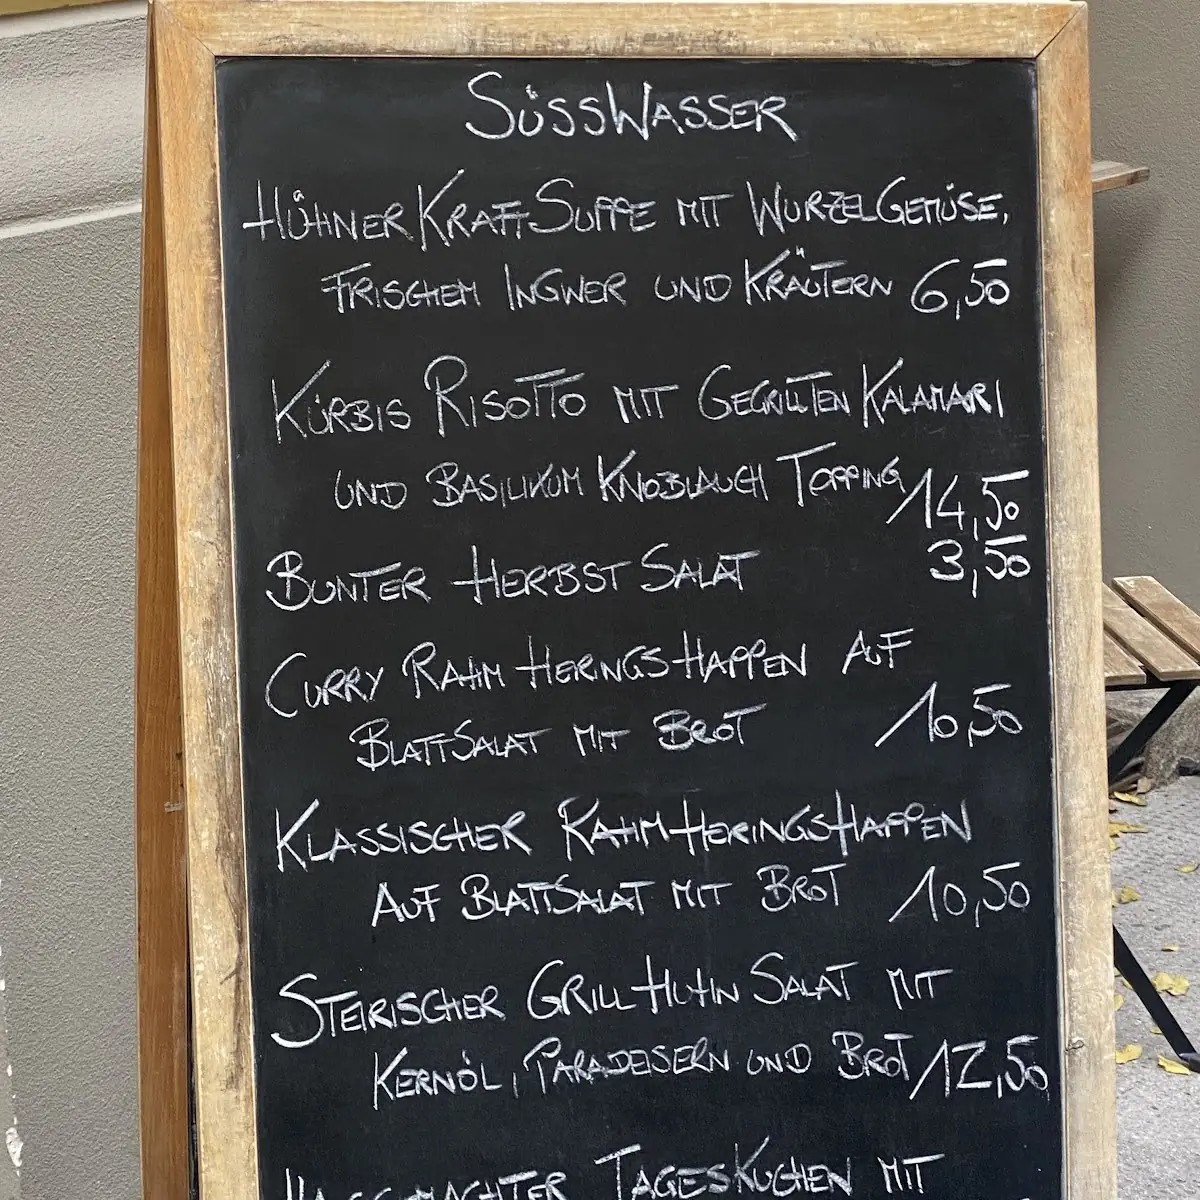 SÜSSWASSER
HÜHNER KRAFT SUPPE MIT WURZELGEMÜSE,
FRISCHEM INGWER UND KRÄUTERN 6,50
KÜRBIS RISOTTO MIT GEGRILLTEN KALAMARI
UND BASILIKUM KNOBLAUCH TOPPING 14,50
BUNTER HERBST SALAT 3,50
CURRY RAHM HERINGSHAPPEN AUF
BLATTSALAT MIT BROT 10,50
KLASSISCHER RAHM HERINGSHAPPEN
AUF BLATTSALAT MIT BROT 10,50
STEIRISCHER GRILL HUHN SALAT MIT
KERNÖL, PARADEISERN UND BROT 12,50
HAUSGEMACHTER TAGESKUCHEN MIT